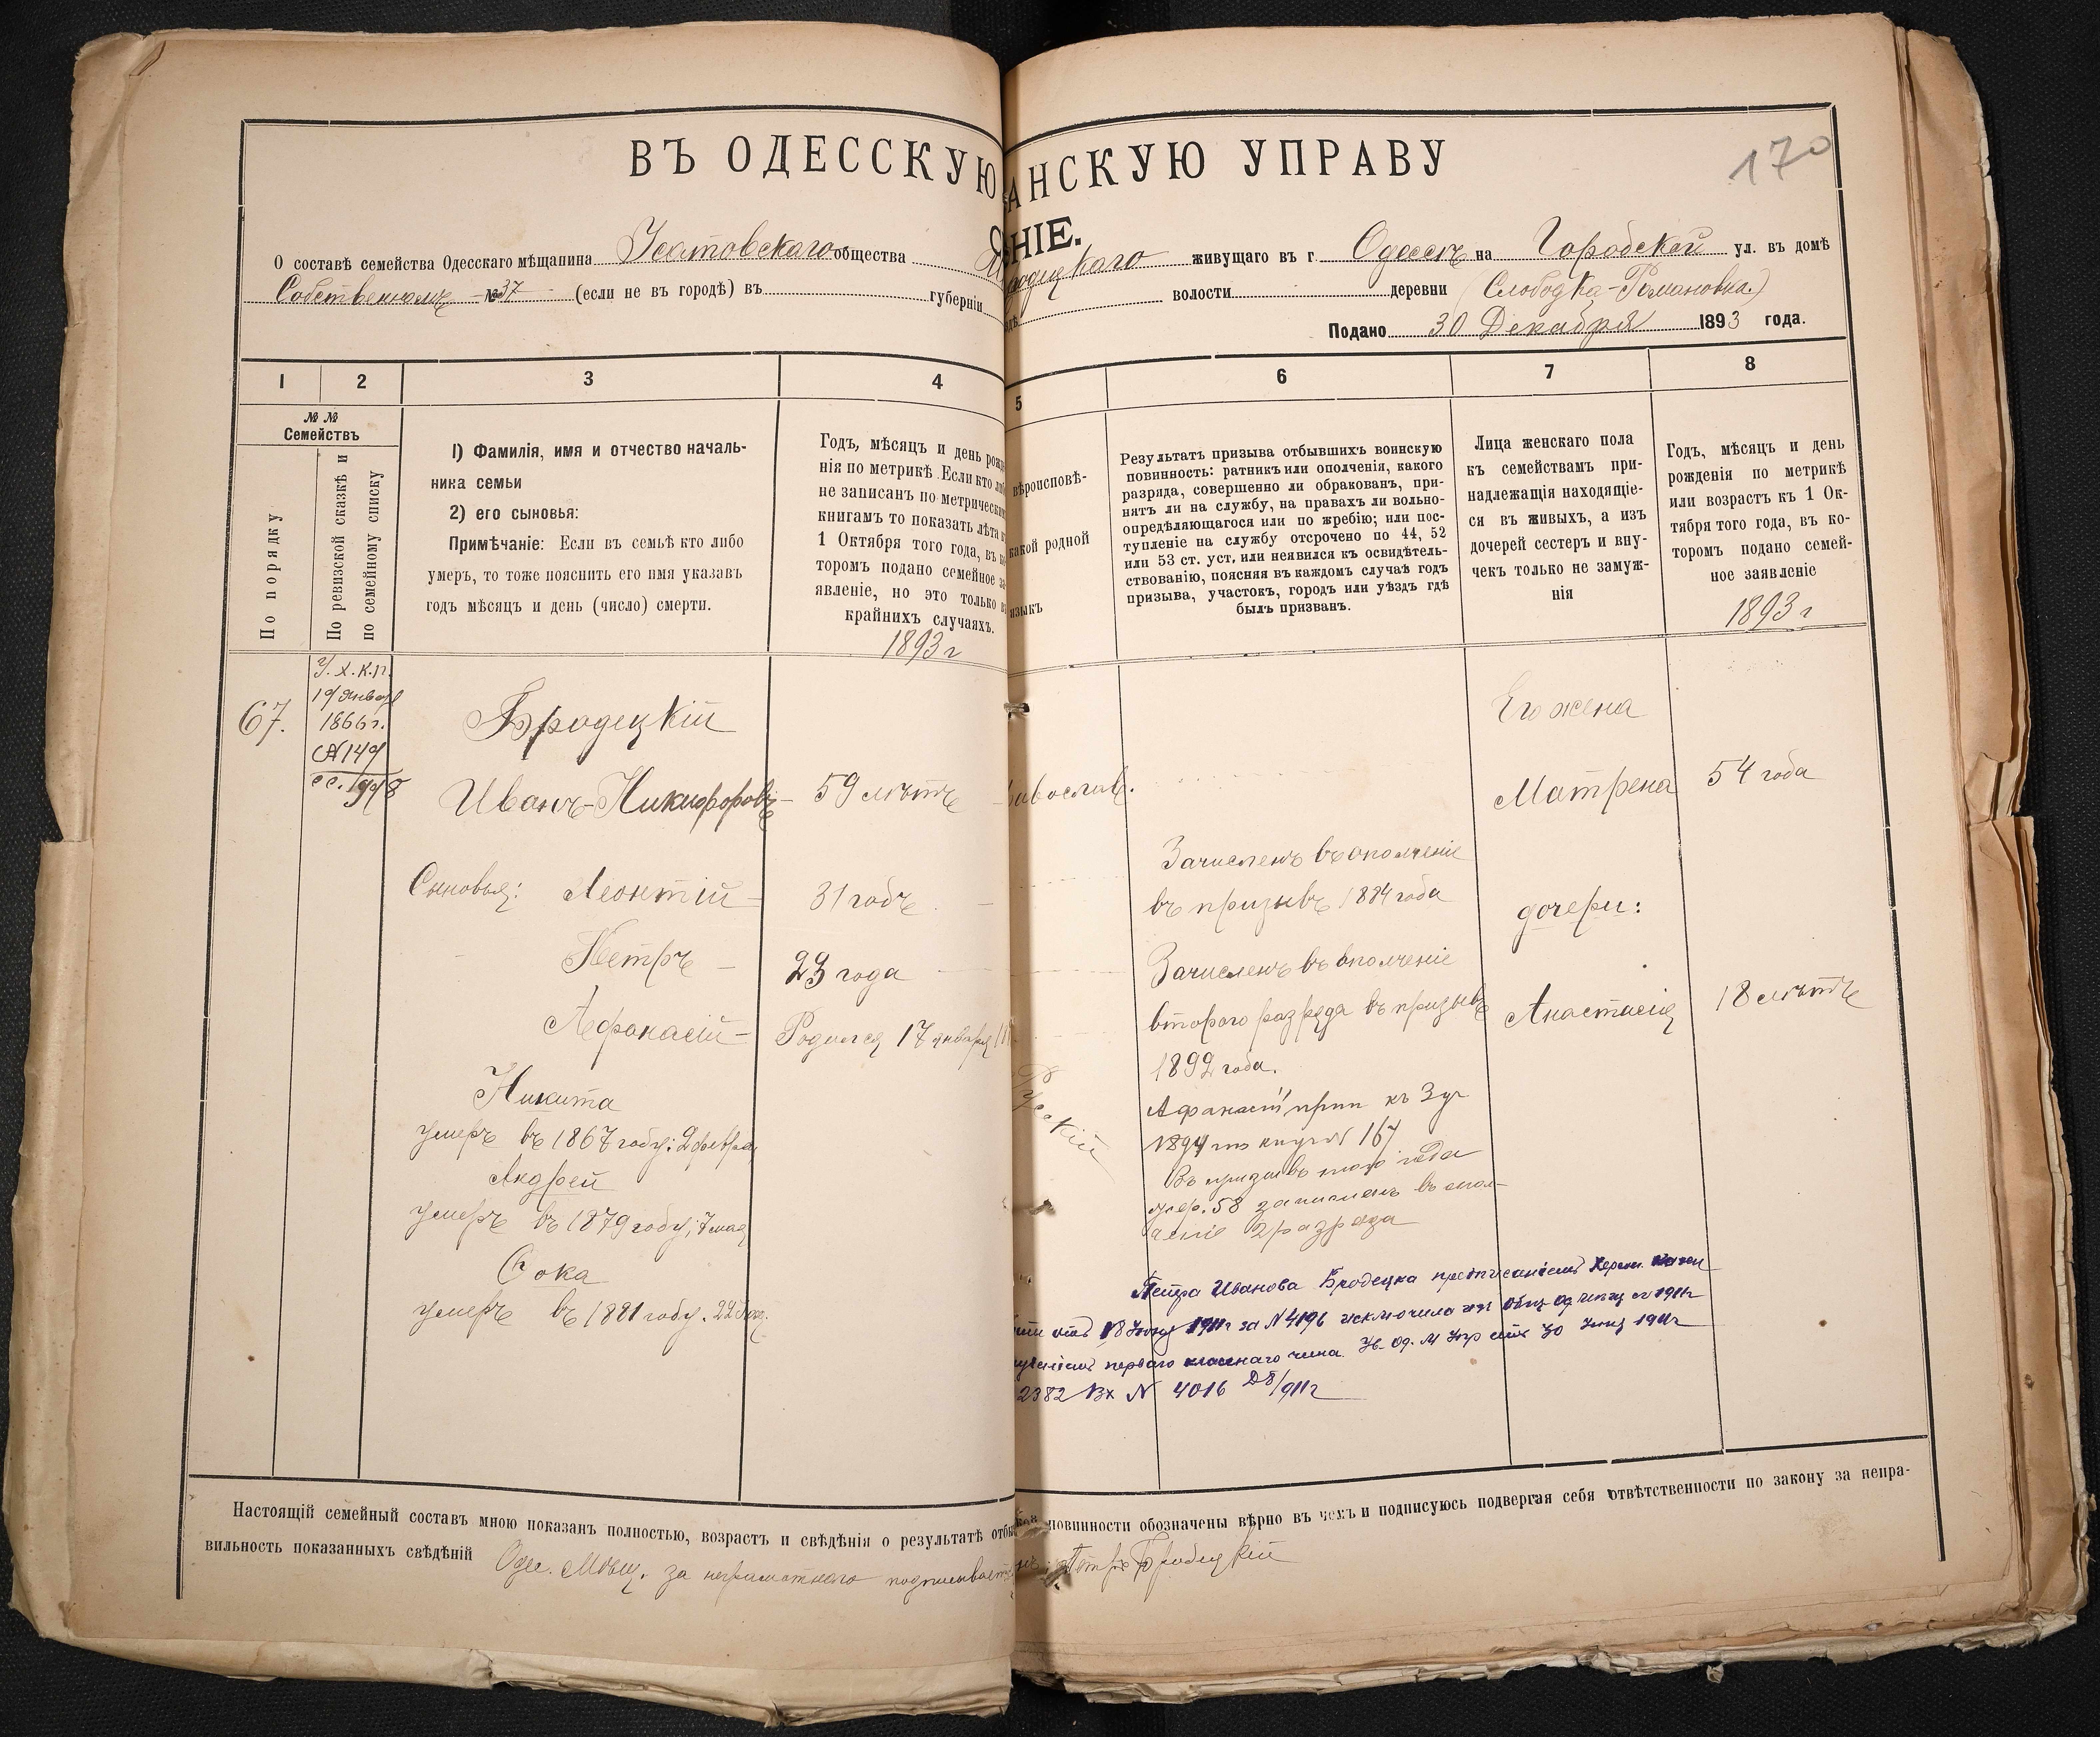 ВЪ ОДЕССКУЮ АНСКУЮ УПРАВУ
170
НІЕ.
О составѣ семейства Одесскаго мѣщанина Усатовскаго общества живущаго въ г. Одессѣ на Городской ул. въ домѣ
Собственномъ №37 (если не въ городѣ) въ губерніи волости деревни (Слободка-Романовка)
Подано 30 Декабря 1893 года.
1 2 3 4 5 6 7 8
№ №
Семействъ
По порядку
По ревизской сказкѣ и
по семейному списку
1) Фамилія, имя и отчество началь-
ника семьи
2) его сыновья:
Примѣчаніе: Если въ семьѣ кто либо
умеръ, то тоже пояснить его имя указавъ
годъ мѣсяцъ и день (число) смерти.
Годъ, мѣсяцъ и день рожде
нія по метрикѣ. Если кто либо
не записанъ по метрическимъ
книгамъ то показать лѣта къ
1 Октября того года, въ ко
торомъ подано семейное за
явленіе, но это только въ
крайнихъ случаяхъ.
1893 г
вѣроисповѣ-
какой родной
языкъ
Результатъ призыва отбывшихъ воинскую
повинность: ратникъ или ополченія, какого
разряда, совершенно ли обракованъ, при-
нятъ ли на службу, на правахъ ли вольно-
опредѣляющагося или по жребію; или пос-
тупленіе на службу отсрочено по 44, 52
или 53 ст. уст, или неявился къ освидѣтель-
ствованію, поясняя въ каждомъ случаѣ годъ
призыва, участокъ, городъ или уѣздъ гдѣ
былъ призванъ.
Лица женскаго пола
къ семействамъ при-
надлежащія находящіе-
ся въ живыхъ, а изъ
дочерей сестеръ и вну-
чекъ только не замуж-
нія
Годъ, мѣсяцъ и день
рожденія по метрикѣ
или возрастъ къ 1 Ок-
тября того года, въ ко-
торомъ подано семей-
ное заявленіе
1893 г
67.
У. Х. К. П.
19 Января
1866 г.
№ 149
Бродецкій
Иванъ-Никифоровъ- 59 лѣтъ
Сыновья: Леонтій- 31 годъ
Петръ- 23 года
Афанасій- Родился 17 января
Никита
умеръ въ 1867 году: 2 февраля
Андрей
умеръ въ 1879 году; 7 мая
Сока
умеръ въ 1881 году.
авослав.
Русскій
Зачисленъ въ ополченіе
въ призывъ 1884 года
Зачисленъ въ ополченіе
второго разряда въ призывъ
1892 года.
Афанасій прип къ 3 уч
1894 по книгѣ № 167
Въ призывъ того года
жер. 58 зачисленъ въ опол-
ченіе 2 разряда
Его жена
Матрена 54 года
дочери:
Анастасія 18 лѣтъ
Петра Иванова Бродецка предписаніемъ Херсон. Казен
отъ 18 1911 г за № 4196 исключила изъ
перваго класснаго чина. Ув. Од. М Упр отъ 30 1911 г
2382 Вх № 4016 Д 8/911 г
Настоящій семейный составъ мною показанъ полностью, возрастъ и свѣдѣнія о результатѣ отбы повинности обозначены вѣрно въ чемъ и подписуюсь подвергая себя отвѣтственности по закону за непра-
вильность показанныхъ свѣдѣній Одес. Мѣщ. за неграмотнаго подписывает Петръ Бродецкій